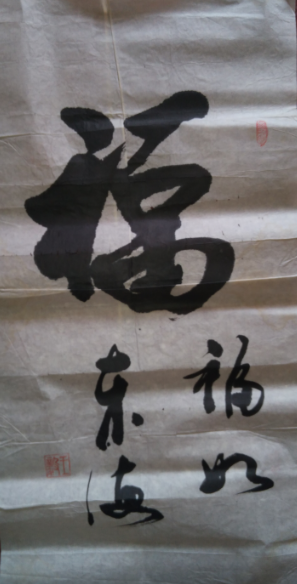 福
福如
东海